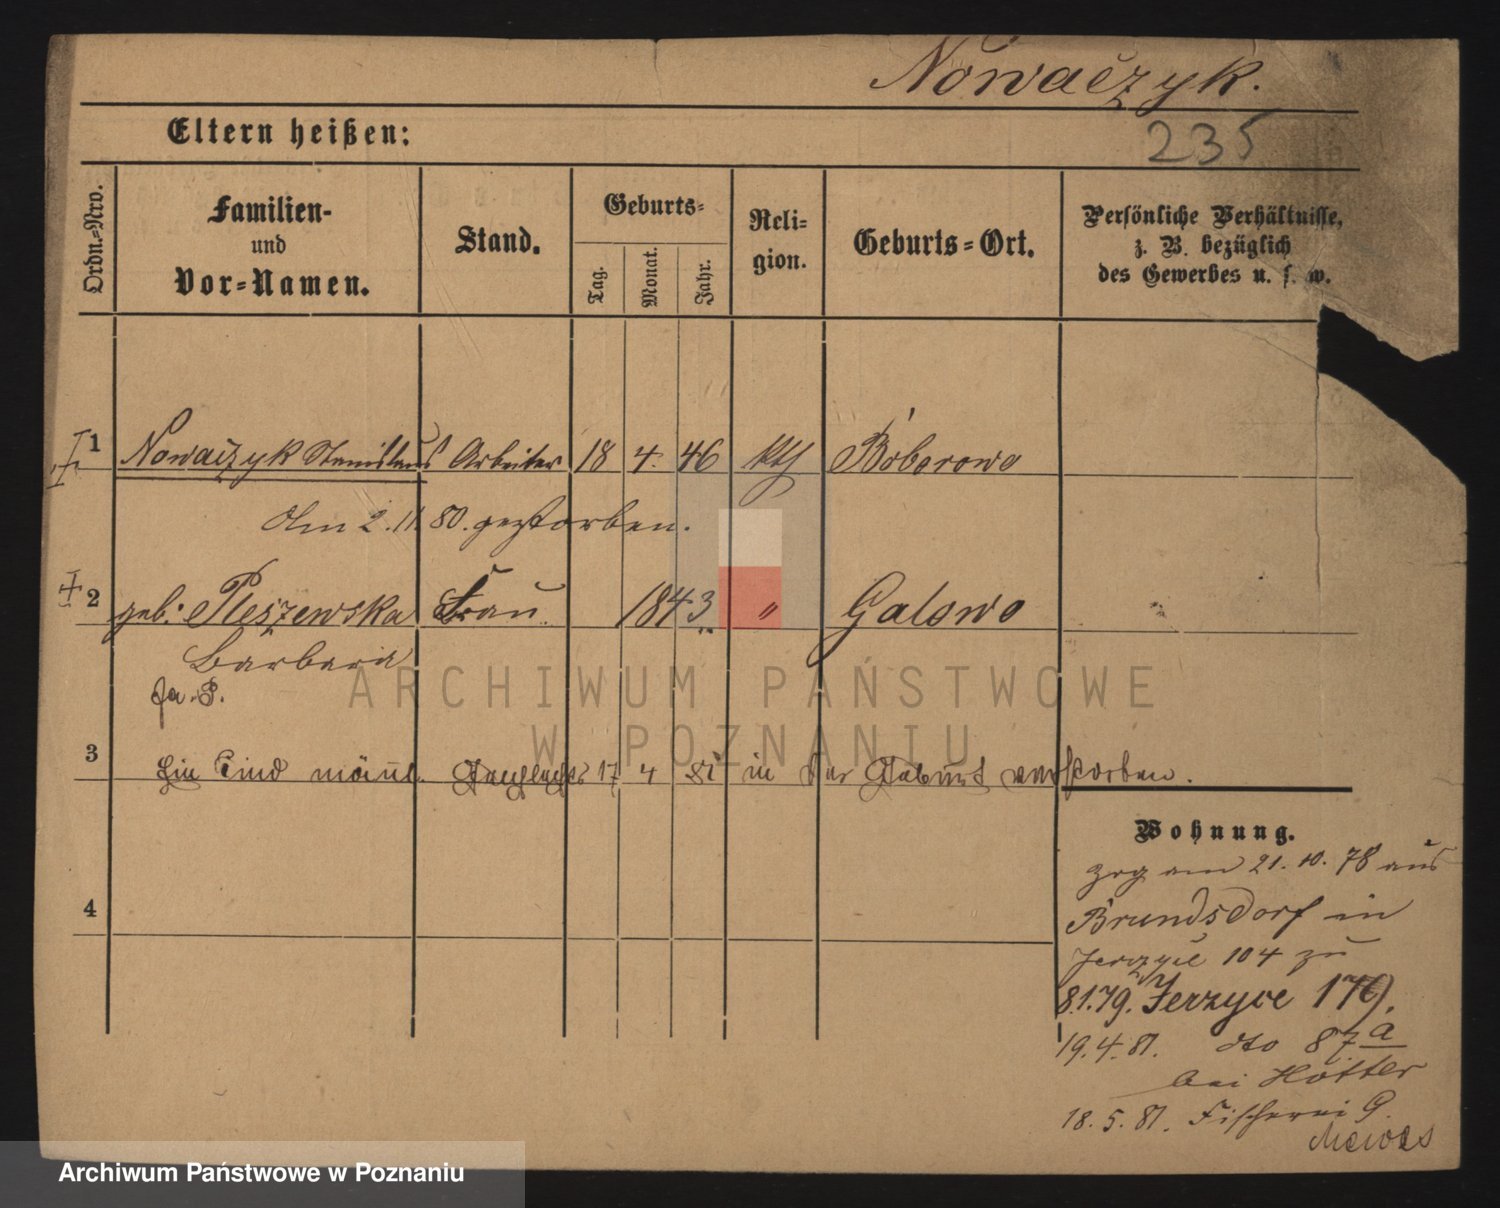 Nowaczyk.
235
Eltern heißen:
Ordn.-Nro.
Familien-
und
Vor-Namen.
Stand.
Geburts-
Tag.
Monat.
Jahr.
Reli-
gion.
Geburts-Ort.
Persönliche Verhältnisse,
z. B. bezüglich
des Gewerbes u. s. w.
1 Nowaczyk Stanislaus Arbeiter 18 4. 46 kth Boborowo
Am 2. 11. 80. gestorben.
2 geb: Pleszewska Frau 1843 " Galowo
Barbara
3 Ein Kind männl. Geschlechts 17 4 81 in der Geburt verstorben.
4
Wohnung.
zog am 21. 10. 78 aus
Brundsdorf in
Jerzyce 104 zu
8.1.79. Jerzyce 179.
19. 4. 81. dto 87 a
bei Hötter
18. 5. 81. Fischerei 9.
ARCHIWUM PAŃSTWOWE
W POZNANIU
Archiwum Państwowe w Poznaniu